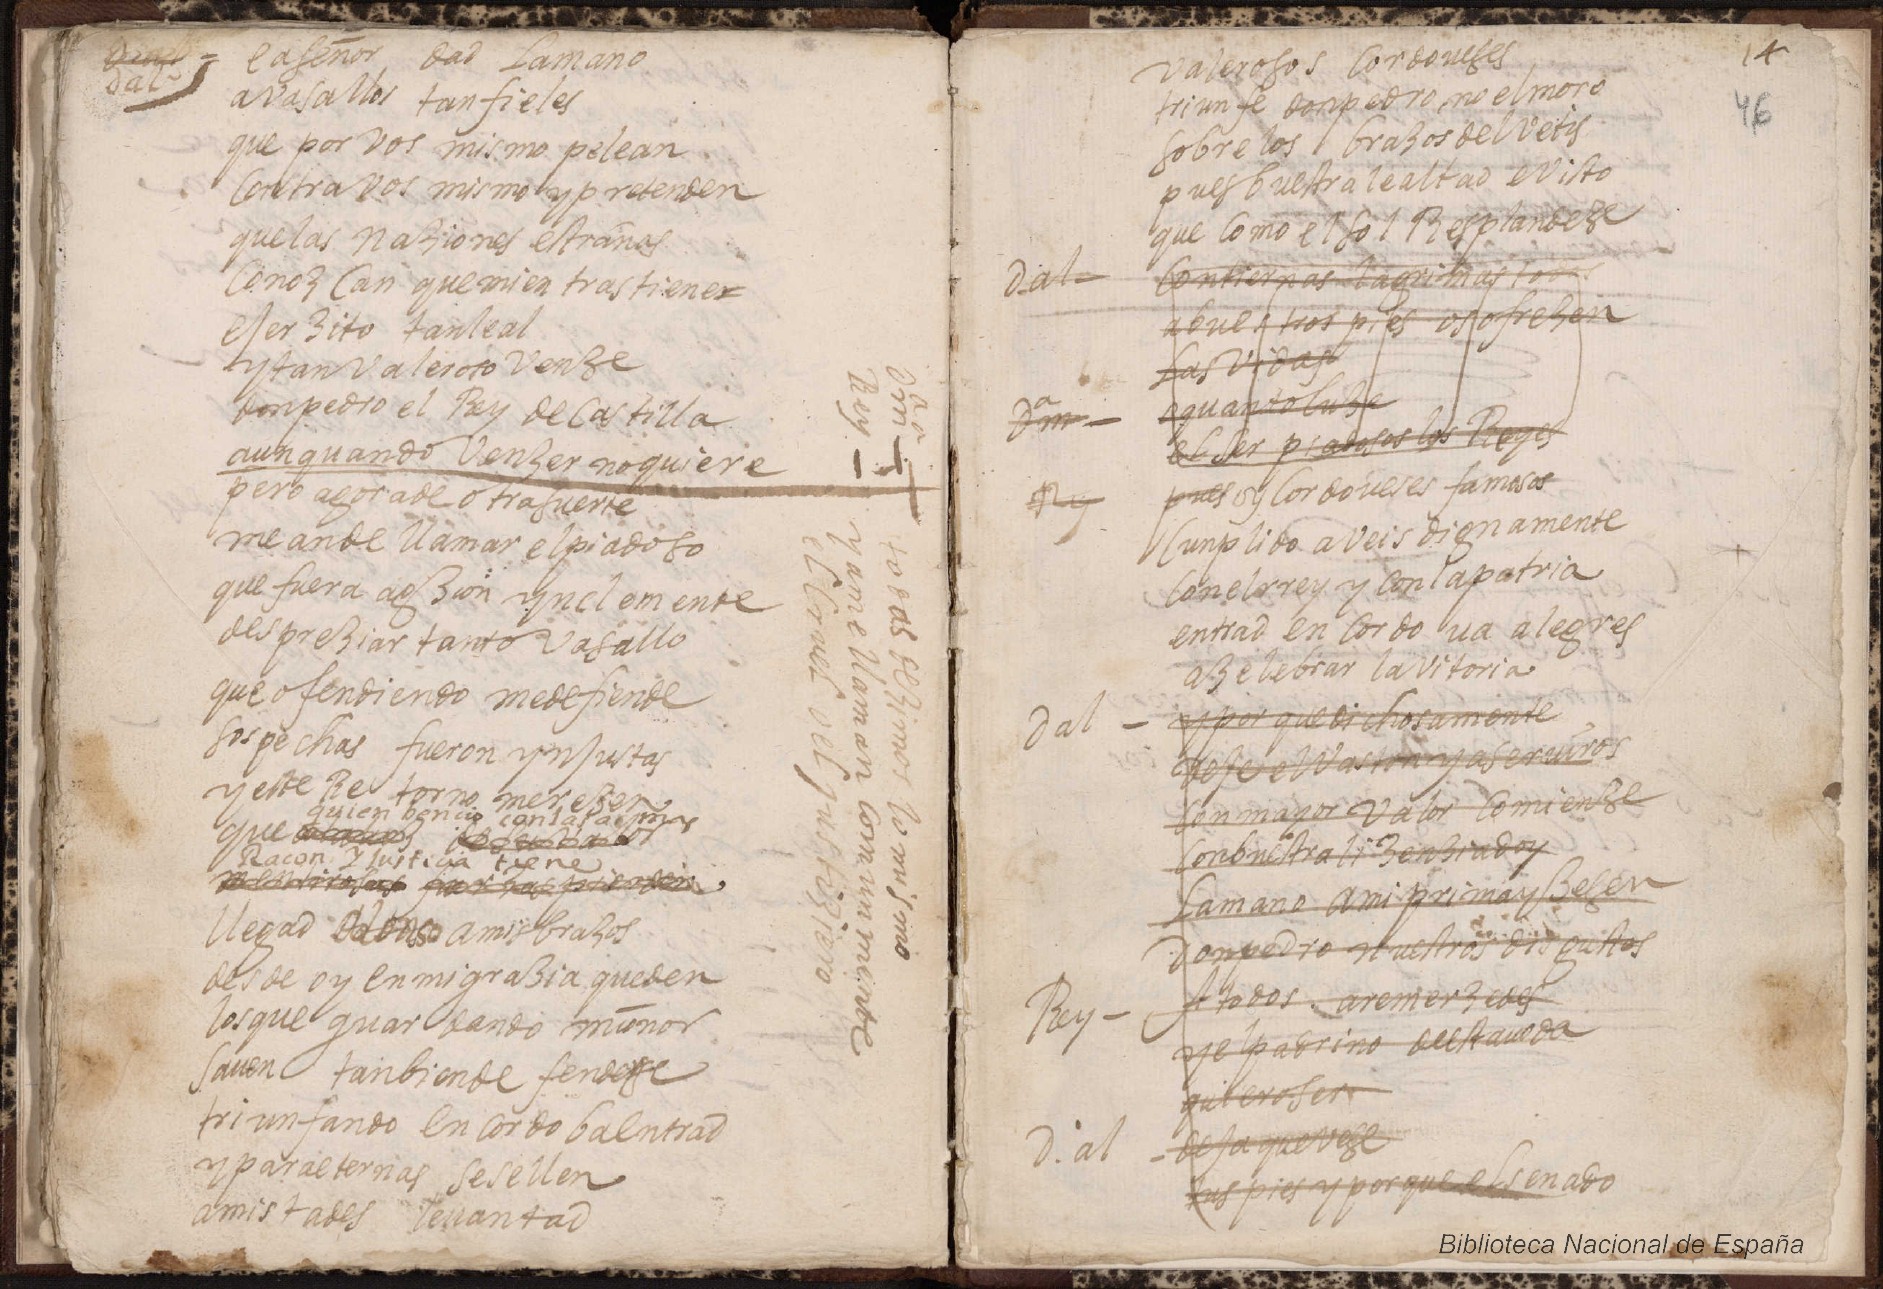 Dal
ea señor dad la mano
a vasallos tan fieles
que por vos mismo pelean
contra vos mismo y pretenden
que las naziones estrañas
conozcan que mientras tiene
ejerzito tan leal
y tan valeroso venze
don pedro el Rey de Castilla
aun quando venzer no quiere
pero agora de otra suerte
me an de llamar el piadoso
que fuera agzion ynclemente
despreziar tanto vasallo
que ofendiendo me defiende
sospechas fueron ynjustas
y este Retorno merezen
quien bencio con la
que
Racon Y Justicia tiene
llegad a mis brazos
desde oy en mi grazia queden
los que guardando mi onor
saven tanbien defenderse
triunfando en cordoba entrad
y para eternas se sellen
amistades levantad
Rey
y a me llaman comunmente
el cruel o el justiziero
Dª m
todos dezimos lo mismo
14
46
valerosos cordoveses
triunfe don pedro no el moro
sobre los brazos del vetis
pues buestra lealtad e visto
que como el sol Resplandeze
Dal
con tiernas lagrimas
a buestros pies os ofrezen
las vidas
Dª m
o quanto luze
el ser piadosos los Reyes
Ry
pues oy cordoveses famosos
cunplido aveis dignamente
con el rrey y con la patria
entrad en cordova alegres
a zelebrar la vitoria
Dal
y porque dichosamente
deje el vaston y a serviros
con mayor valor comienze
con buestra lizenzia doy
la mano a mi prima y zesen
don pedro nuestros disgustos
Rey
A todos are merzedes
y el padrino desta voda
quiero ser
D. al
deja que vese
tus pies y porque el senado
Biblioteca Nacional de España